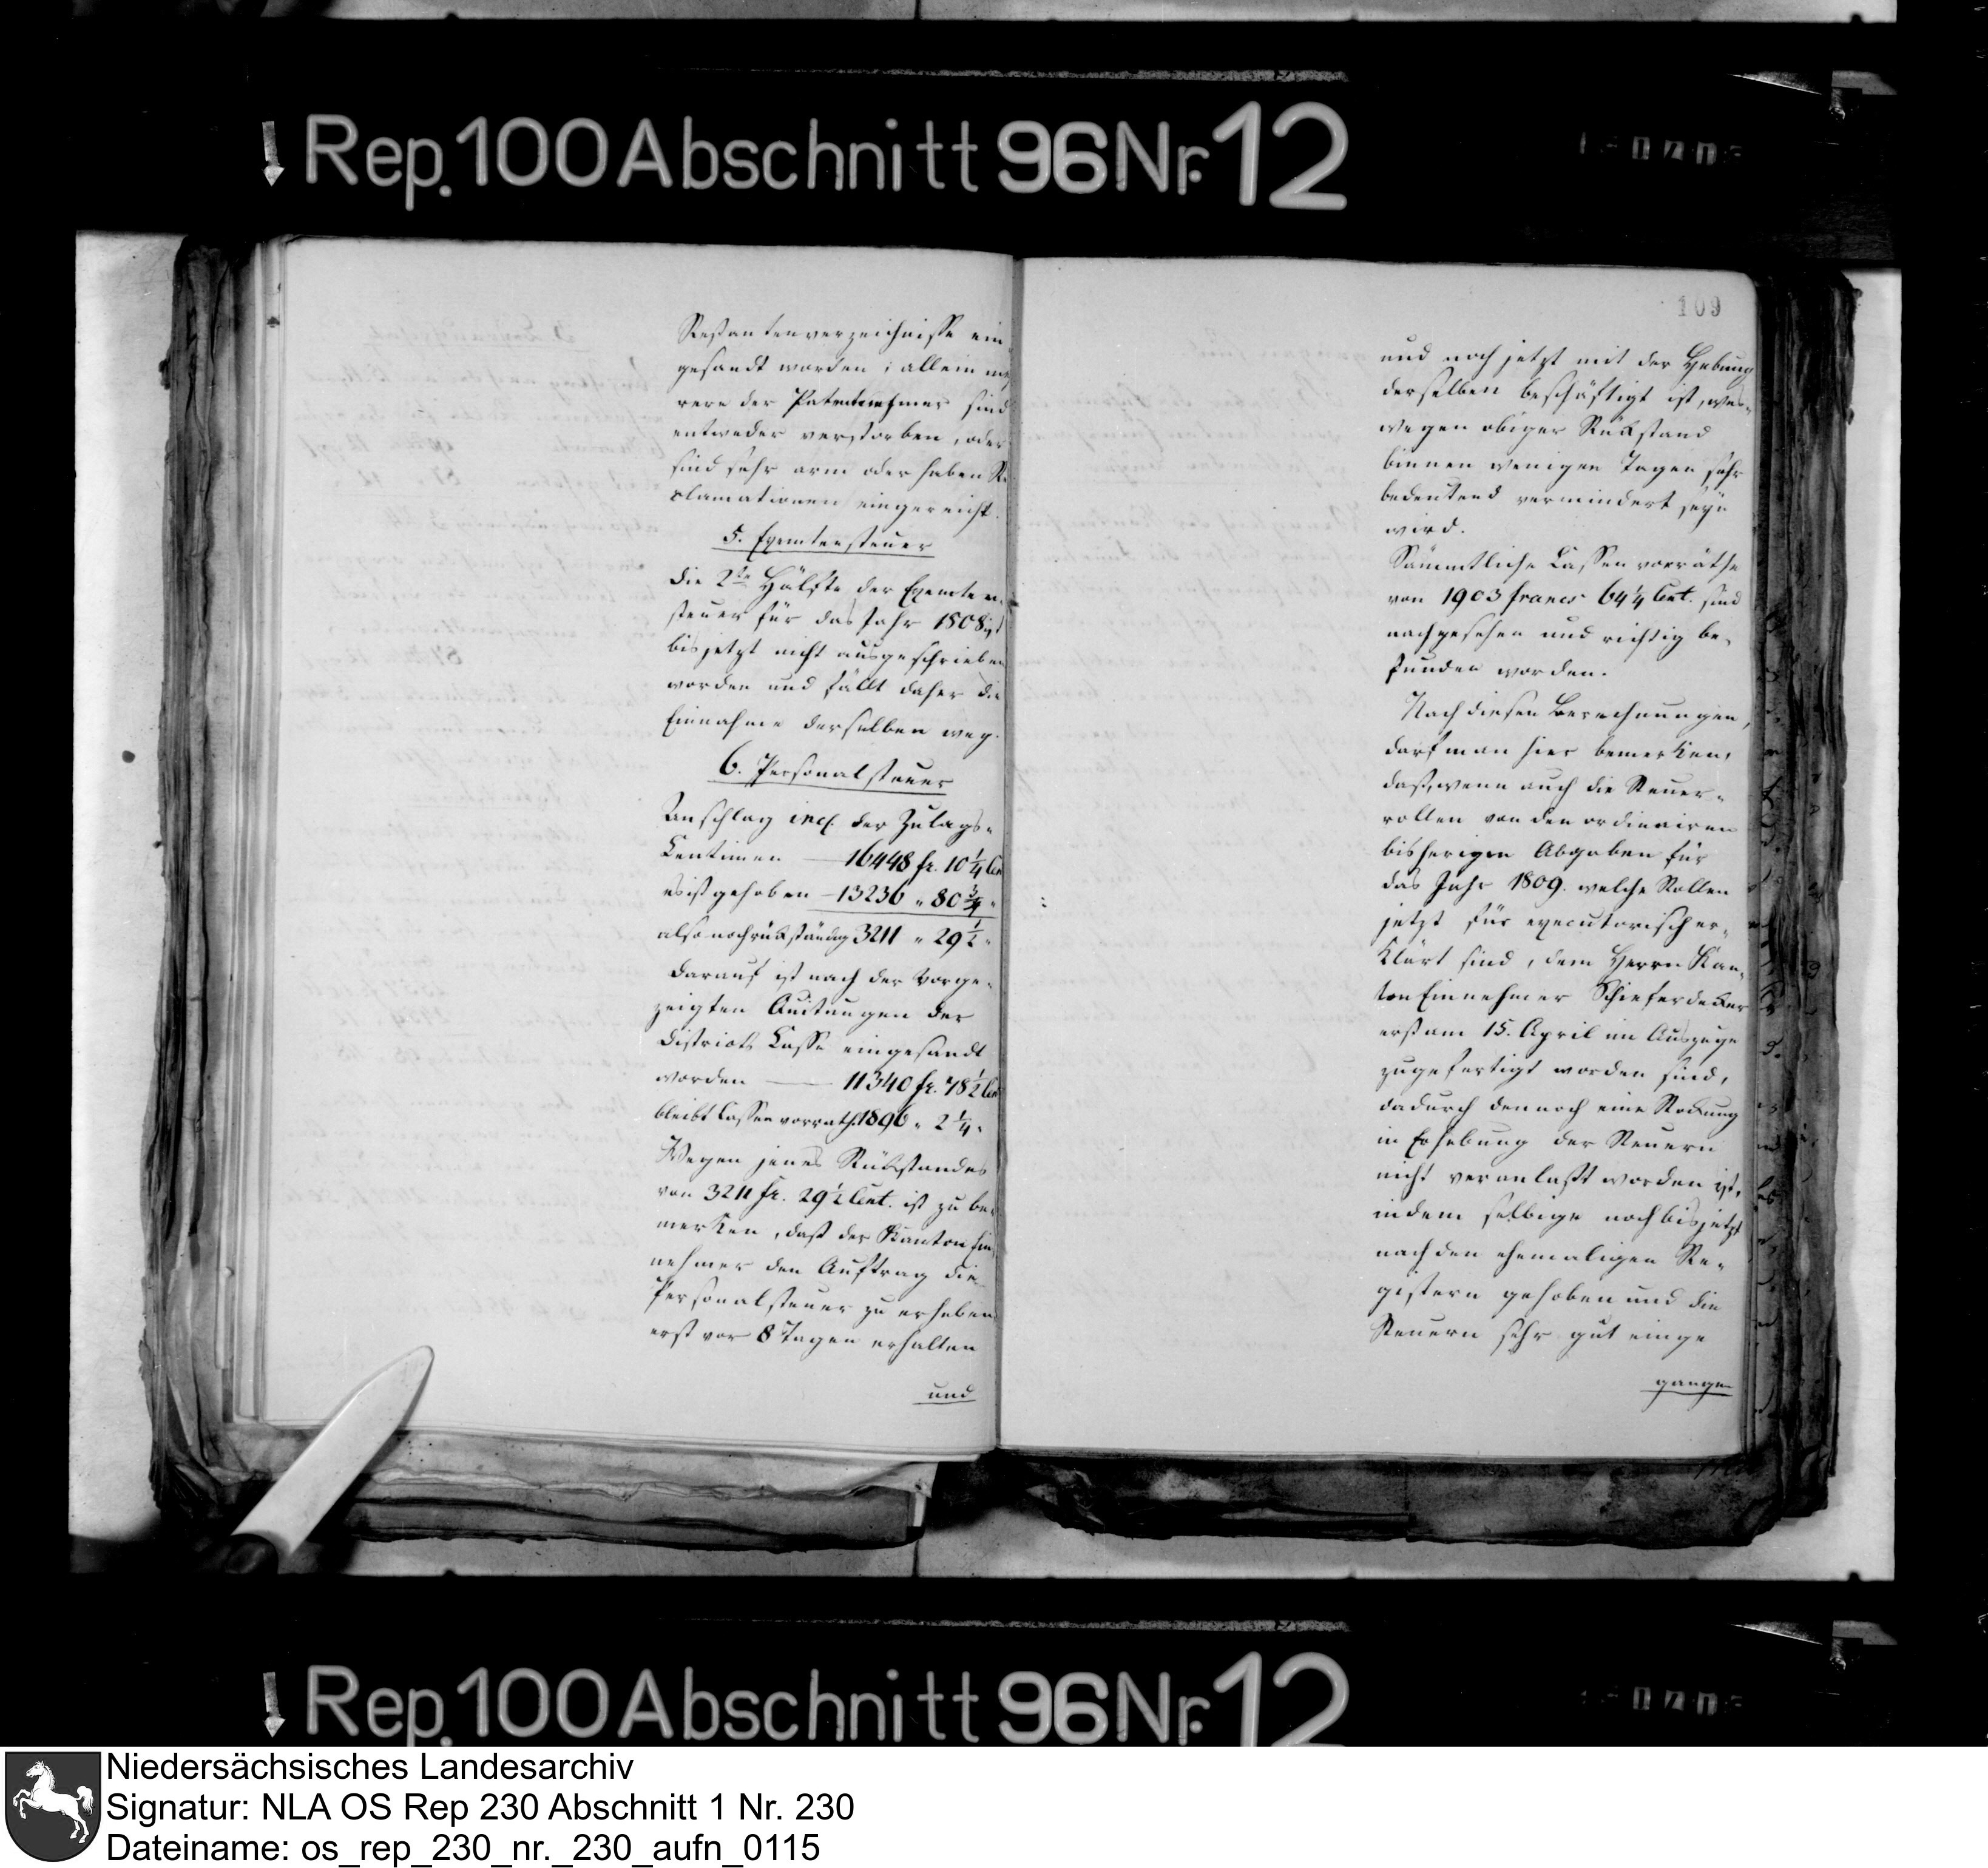 Rep. 100 Abschnitt 96 Nr. 12
Restantenverzeichnisse ein-
gesandt worden; allein meh
rere der Patentnehmer sind
entweder verstorben, oder
sind sehr arm oder haben Re
clamationen eingereicht.
5. Exemtensteuer
Die 2te Hälfte der Exemten-
steuer für das Jahr 1808 ist
bis jetzt nicht ausgeschrieben
worden und fällt daher die
Einnahme derselben weg.
6. Personalsteuer
Anschlag incl. der Zulags-
Centimen — 16448 fr. 10 1/4 Cen
es ist gehoben — 13236 " 80 3/4 "
also noch rückständig 3211 " 29 1/2 "
Darauf ist nach der vorge-
zeigten Quitungen der
Districts Casse eingesandt
worden — 11340 fr. 78 1/2 Cen
bleibt Cassenvorrath 1896 " 2 1/4 "
Wegen jenes Rückstandes
von 3211 fr. 29 1/2 Cent. ist zu be-
merken, daß der Kanton Ein
nehmer den Auftrag die
Personalsteuer zu erheben
erst vor 8 Tagen erhalten
und
109
und noch jetzt mit der Hebung
derselben beschäftigt ist, wes-
wegen obiger Rückstand
binnen wenigen Tagen sehr
bedeutend vermindert seyn
wird.
Sämmtliche Cassenvorräthe
von 1903 francs 64 1/4 Cent. sind
nachgesehen und richtig be-
funden worden.
Nach diesen Berechnungen,
darf man hier bemerken,
daß, wenn auch die Steuer-
rollen von den ordinairen
bisherigen Abgaben für
das Jahr 1809. welche Rollen
jetzt für executorisch er-
klärt sind, dem Herrn Kan-
ton Einnehmer Schieferdecker
erst am 15. April im Auszuge
zugefertigt worden sind,
dadurch dennoch eine Stockung
in Erhebung der Steuern
nicht veranlaßt worden ist,
indem selbige noch bis jetzt
nach den ehemaligen Re-
gistern gehoben und die
Steuern sehr gut einge
gangen
Rep. 100 Abschnitt 96 Nr. 12
Niedersächsisches Landesarchiv
Signatur: NLA OS Rep 230 Abschnitt 1 Nr. 230
Dateiname: os_rep_230_nr._230_aufn_0115